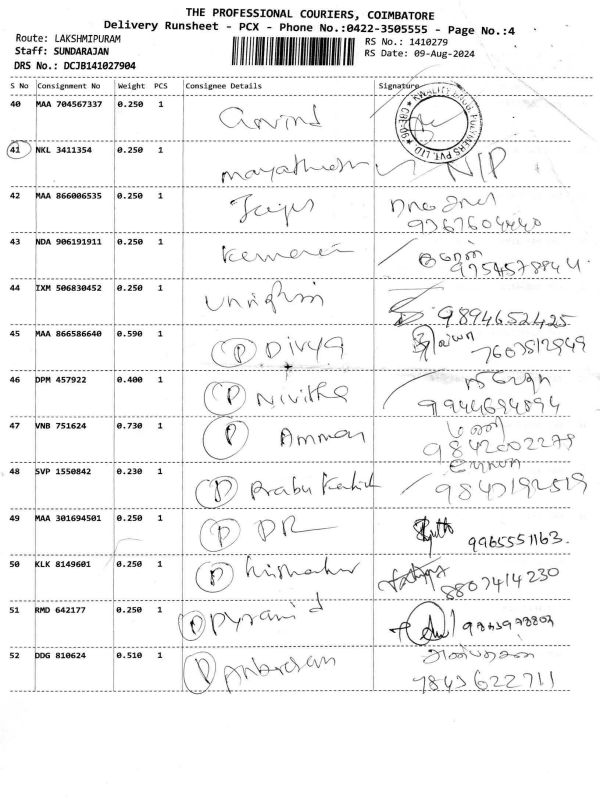 THE PROFESSIONAL COURIERS, COIMBATORE
Delivery Runsheet - PCX - Phone No.:0422-3505555 - Page No.:4
Route: LAKSHMIPURAM
RS No.: 1410279
Staff: SUNDARAJAN
RS Date: 09-Aug-2024
DRS No.: DCJB141027904
S No Consignment No Weight PCS Consignee Details Signature
40 MAA 704567337 0.250 1 Arvind
41 NKL 3411354 0.250 1 N/P
42 MAA 866006535 0.250 1
43 NDA 906191911 0.250 1
9754578844
44 IXM 506830452 0.250 1
9894652425
45 MAA 866586640 0.590 1 (P) Divya
46 DPM 457922 0.400 1 (P) Nivitha
9944694894
47 VNB 751624 0.730 1 (P) Amman மணி
9842002279
48 SVP 1550842 0.230 1 (P) Prabu
9843192519
49 MAA 301694501 0.250 1 (P) DR
9965551163.
50 KLK 8149601 0.250 1 (P)
8807414230
51 RMD 642177 0.250 1 (P) Pyramid
52 DDG 810624 0.510 1 (P) Anbarasan
7845622711